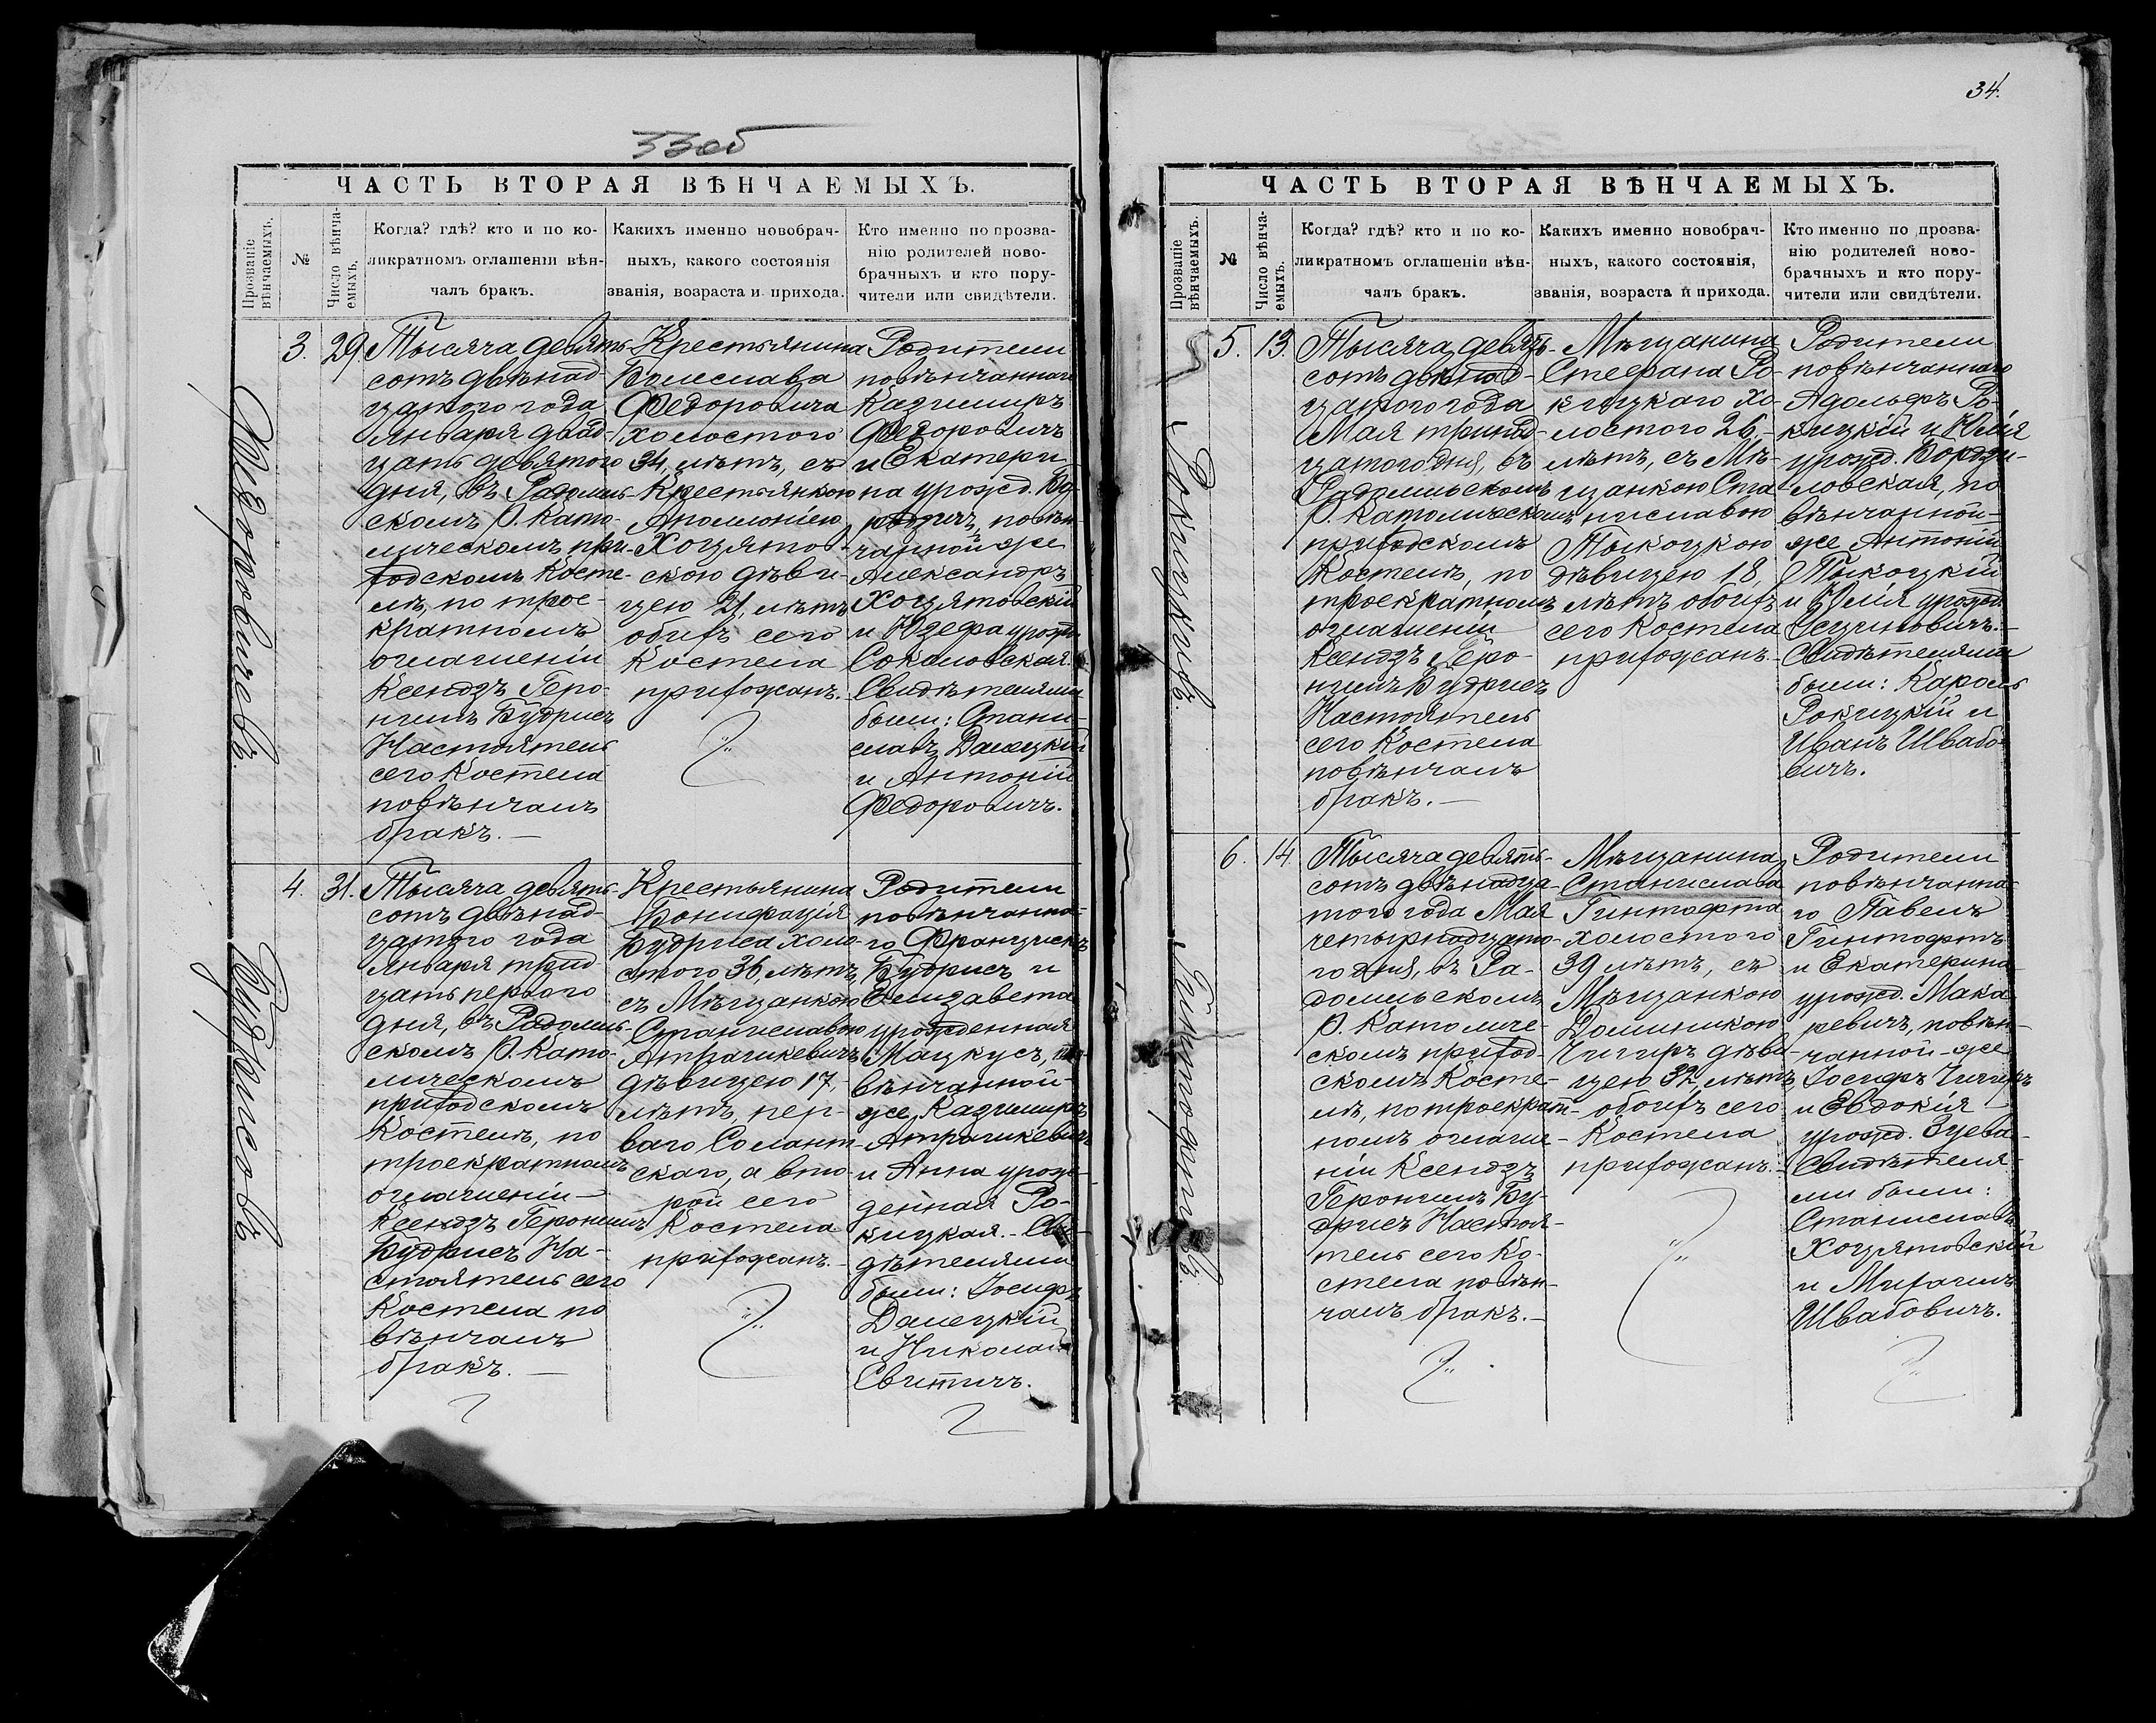 33об
ЧАСТЬ ВТОРАЯ ВѢНЧАЕМЫХЪ.
Прозваніе вѣнчаемыхъ.
№
Число вѣнча-
емыхъ.
Когда? гдѣ? кто и по ко-
ликратномъ оглашеніи вѣн-
чалъ бракъ.
Какихъ именно новобрач-
ныхъ, какого состоянія
званія, возраста и прихода.
Кто именно по прозва-
нію родителей ново-
брачныхъ и кто пору-
чители или свидѣтели.
Федоровичевъ.
3.
29.
Тысяча девять-
сотъ двѣнад-
цатого года
Января двад-
цать девятого
дня, въ Радомыс-
скомъ Р. Като-
лическомъ при-
ходскомъ Косте-
лѣ, по трое-
кратномъ
оглашеніи
Ксендзъ Геро-
нимъ Будрисъ
Настоятель
сего Костела
повѣнчалъ
бракъ.
Крестьянина
Болеслава
Федоровича
холостого
34, лѣтъ, съ
Крестьянкою
Аполлоніею
Хоцятов-
скою дѣви-
цею 21, лѣтъ
обоихъ сего
Костела
прихожанъ.
Родители
повѣнчаннаго
Казимиръ
Федоровичъ
и Екатери
на урожд.
повѣн-
чанной же
Александръ
Хоцятовскій
и Юзефа урожд.
Соколовская.
Свидѣтелями
были: Стани-
славъ Далецкій
и Антоній
Федоровичъ.
Будрисовъ
4.
31.
Тысяча девять-
сотъ двѣнад-
цатого года
Января трид-
цать перваго
дня, въ Радомыс-
скомъ Р. Като-
лическомъ
приходскомъ
Костелѣ, по
троекратномъ
оглашеніи
Ксендзъ Геронимъ
Будрисъ На-
стоятель сего
Костела по
вѣнчалъ
бракъ.
Крестьянина
Бонифація
Будриса холо-
стого 36, лѣтъ,
съ Мѣщанкою
Станиславою
Атрашкевичъ
дѣвицею 17,
лѣтъ, пер-
ваго Солант-
скаго, а вто-
рой сего
Костела
прихожанъ.
Родители
повѣнчанна-
го Францискъ
Будрисъ и
Елизавета
урожденная
Мацкусъ, по-
вѣнчанной-
же Казимиръ
Атрашкевичъ
и Анна урож-
денная Ро-
кицкая. Сви-
дѣтелями
были: Іосифъ
Далецкій
и Николай
Свитичъ.
34.
ЧАСТЬ ВТОРАЯ ВѢНЧАЕМЫХЪ.
Прозваніе вѣнчаемыхъ.
№
Число вѣнча-
емыхъ.
Когда? гдѣ? кто и по ко-
ликратномъ оглашеніи вѣн-
чалъ бракъ.
Какихъ именно новобрач-
ныхъ, какого состоянія,
званія, возраста и прихода.
Кто именно по прозва-
нію родителей ново-
брачныхъ и кто пору-
чители или свидѣтели.
Рокицкихъ.
5.
13.
Тысяча девять-
сотъ двѣнад-
цатого года
Мая тринад-
цатого дня, въ
Радомысльскомъ
Р. Католическомъ
приходскомъ
Костелѣ, по
троекратномъ
оглашеніи
Ксендзъ Геро-
нимъ Будрисъ
Настоятель
сего Костела
повѣнчалъ
бракъ.
Мѣщанина
Стефана Ро-
кицкаго хо-
лостого 26,
лѣтъ, съ Мѣ-
щанкою Ста-
ниславою
Тыкоцкою
дѣвицею 18,
лѣтъ обоихъ
сего Костела
прихожанъ.
Родители
повѣнчаннаго
Адольфъ Ро-
кицкій и Юлія
урожд.
ловская, по
вѣнчанной-
же Антоній
Тыкоцкій
и Юлія урожд.
Свидѣтелями
были: Кароль
Рокицкій и
Иванъ Швабо-
вичъ.
Гинтофтовъ.
6.
14.
Тысяча девять-
сотъ двѣнадца-
того года Мая
четырнадцато-
го дня, въ Ра-
домысльскомъ
Р. Католиче-
скомъ приход-
скомъ Косте-
лѣ, по троекрат-
номъ оглаше-
ніи Ксендзъ
Геронимъ Бу-
дрисъ Настоя-
тель сего Ко-
стела повѣн-
чалъ бракъ.
Мѣщанина
Станислава
Гинтофта
холостого
39 лѣтъ, съ
Мѣщанкою
Доминикою
Чигиръ дѣви-
цею 32, лѣтъ
обоихъ сего
Костела
прихожанъ.
Родители
повѣнчанна-
го Павелъ
Гинтофтъ
и Екатерина
урожд. Мака
ревичъ, повѣн-
чанной-же
Іосифъ Чигиръ
и Евдокія
урожд. Зуева
Свидѣтеля-
ми были:
Станиславъ
Хоцятовскій
и Михаилъ
Швабовичъ.